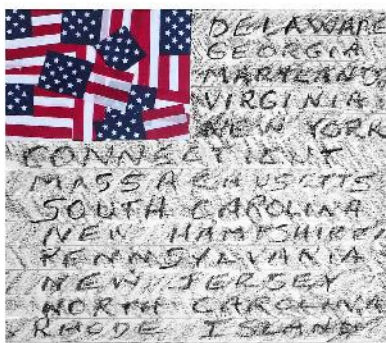 DELAWARE
GEORGIA
MARYLAND
VIRGINIA
NEW YORK
CONNECTICUT
MASSACHUSETTS
SOUTH CAROLINA
NEW HAMPSHIRE
PENNSYLVANIA
NEW JERSEY
NORTH CAROLINA
RHODE ISLAND